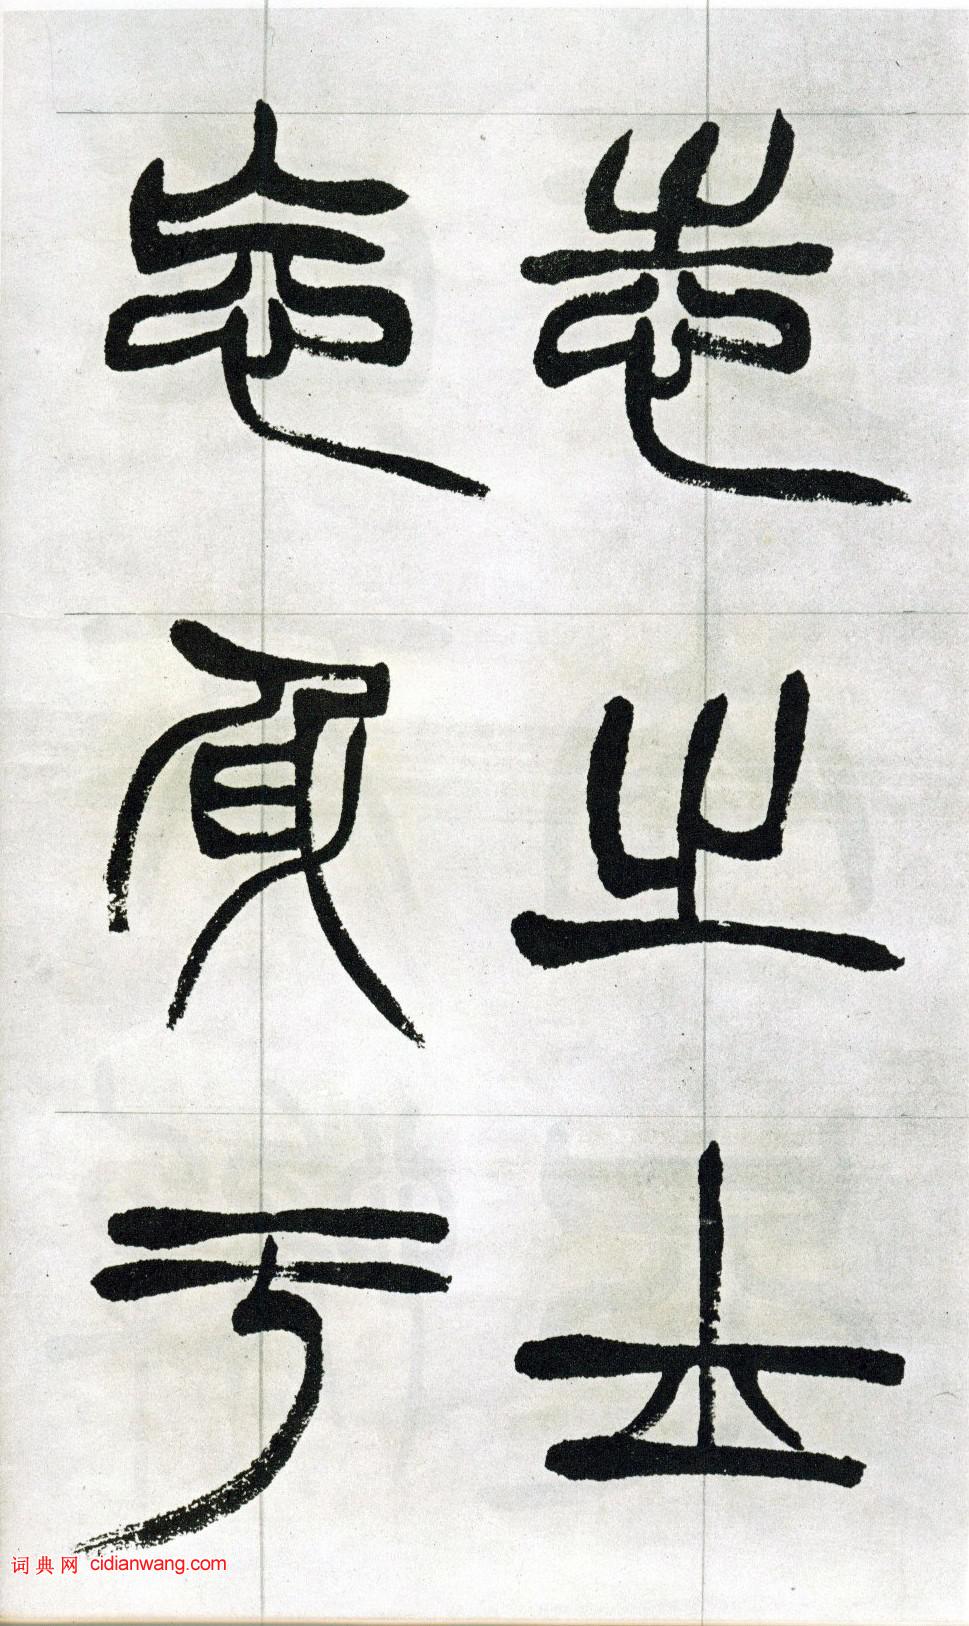 志之士
忘身于
词典网 cidianwang.com